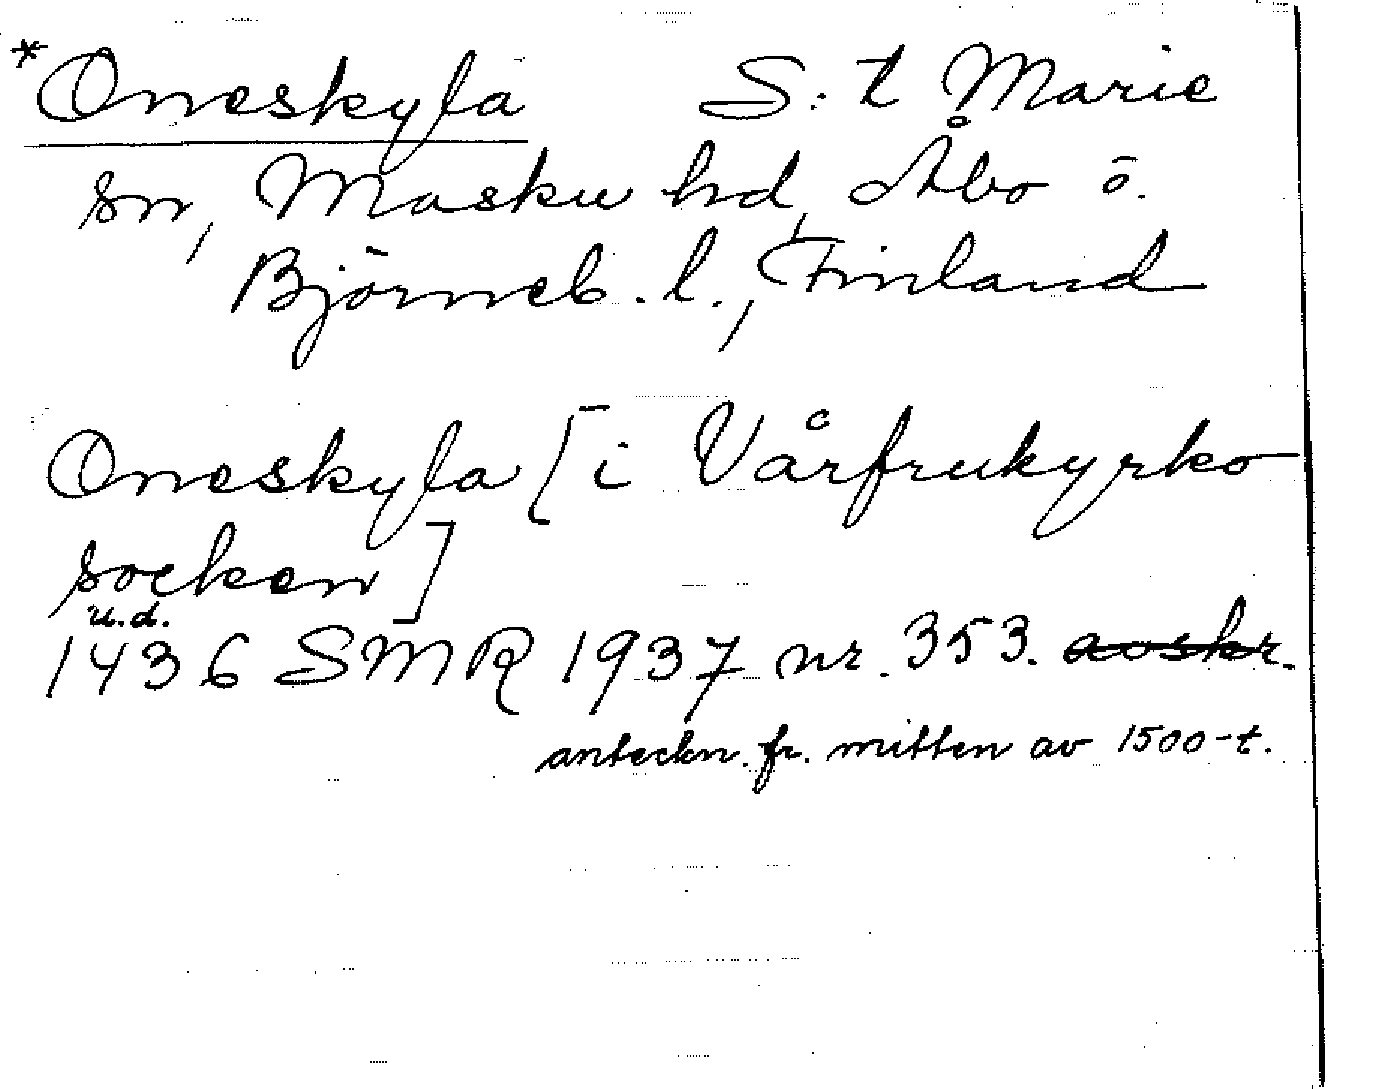 *Oneskyla S:t Marie
sn, Masku hd, Åbo o.
Björneb. l., Finland
Oneskyla [i Vårfrukyrko
socken]
u.d.
1436 SMR 1937 nr. 353. avskr.
anteckn. fr. mitten av 1500-t.